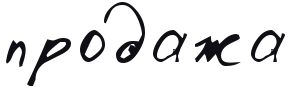 продажа